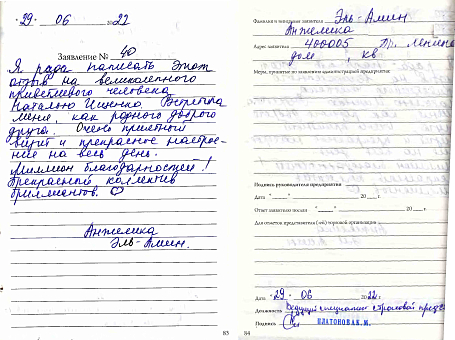 "29" 06 2022
Заявление № 40
Я рада написать этот
отзыв на великолепного
приветливого человека
Наталью Ищенко. Встретила
меня, как родного доброго
друга. Очень приятный
визит и прекрасное настрое-
ние на весь день.
Миллион благодарностей!
Прекрасный коллектив
бриллиантов.
Анжелика
Эль-Амин.
83
Фамилия и инициалы заявителя Эль-Амин
Анжелика
Адрес заявителя 400005 Пр. Ленина
дом , кв
Меры, принятые по заявлению администрацией предприятия:
Подпись руководителя предприятия
Дата "___" 20__ г.
Ответ заявителю послан "___" 20__ г.
Для отметок представителя (ей) торговой организации
Дата "29" 06 2022 г.
Должность Ведущий специалист страховой
Подпись ПЛАТОНОВА К. М.
84